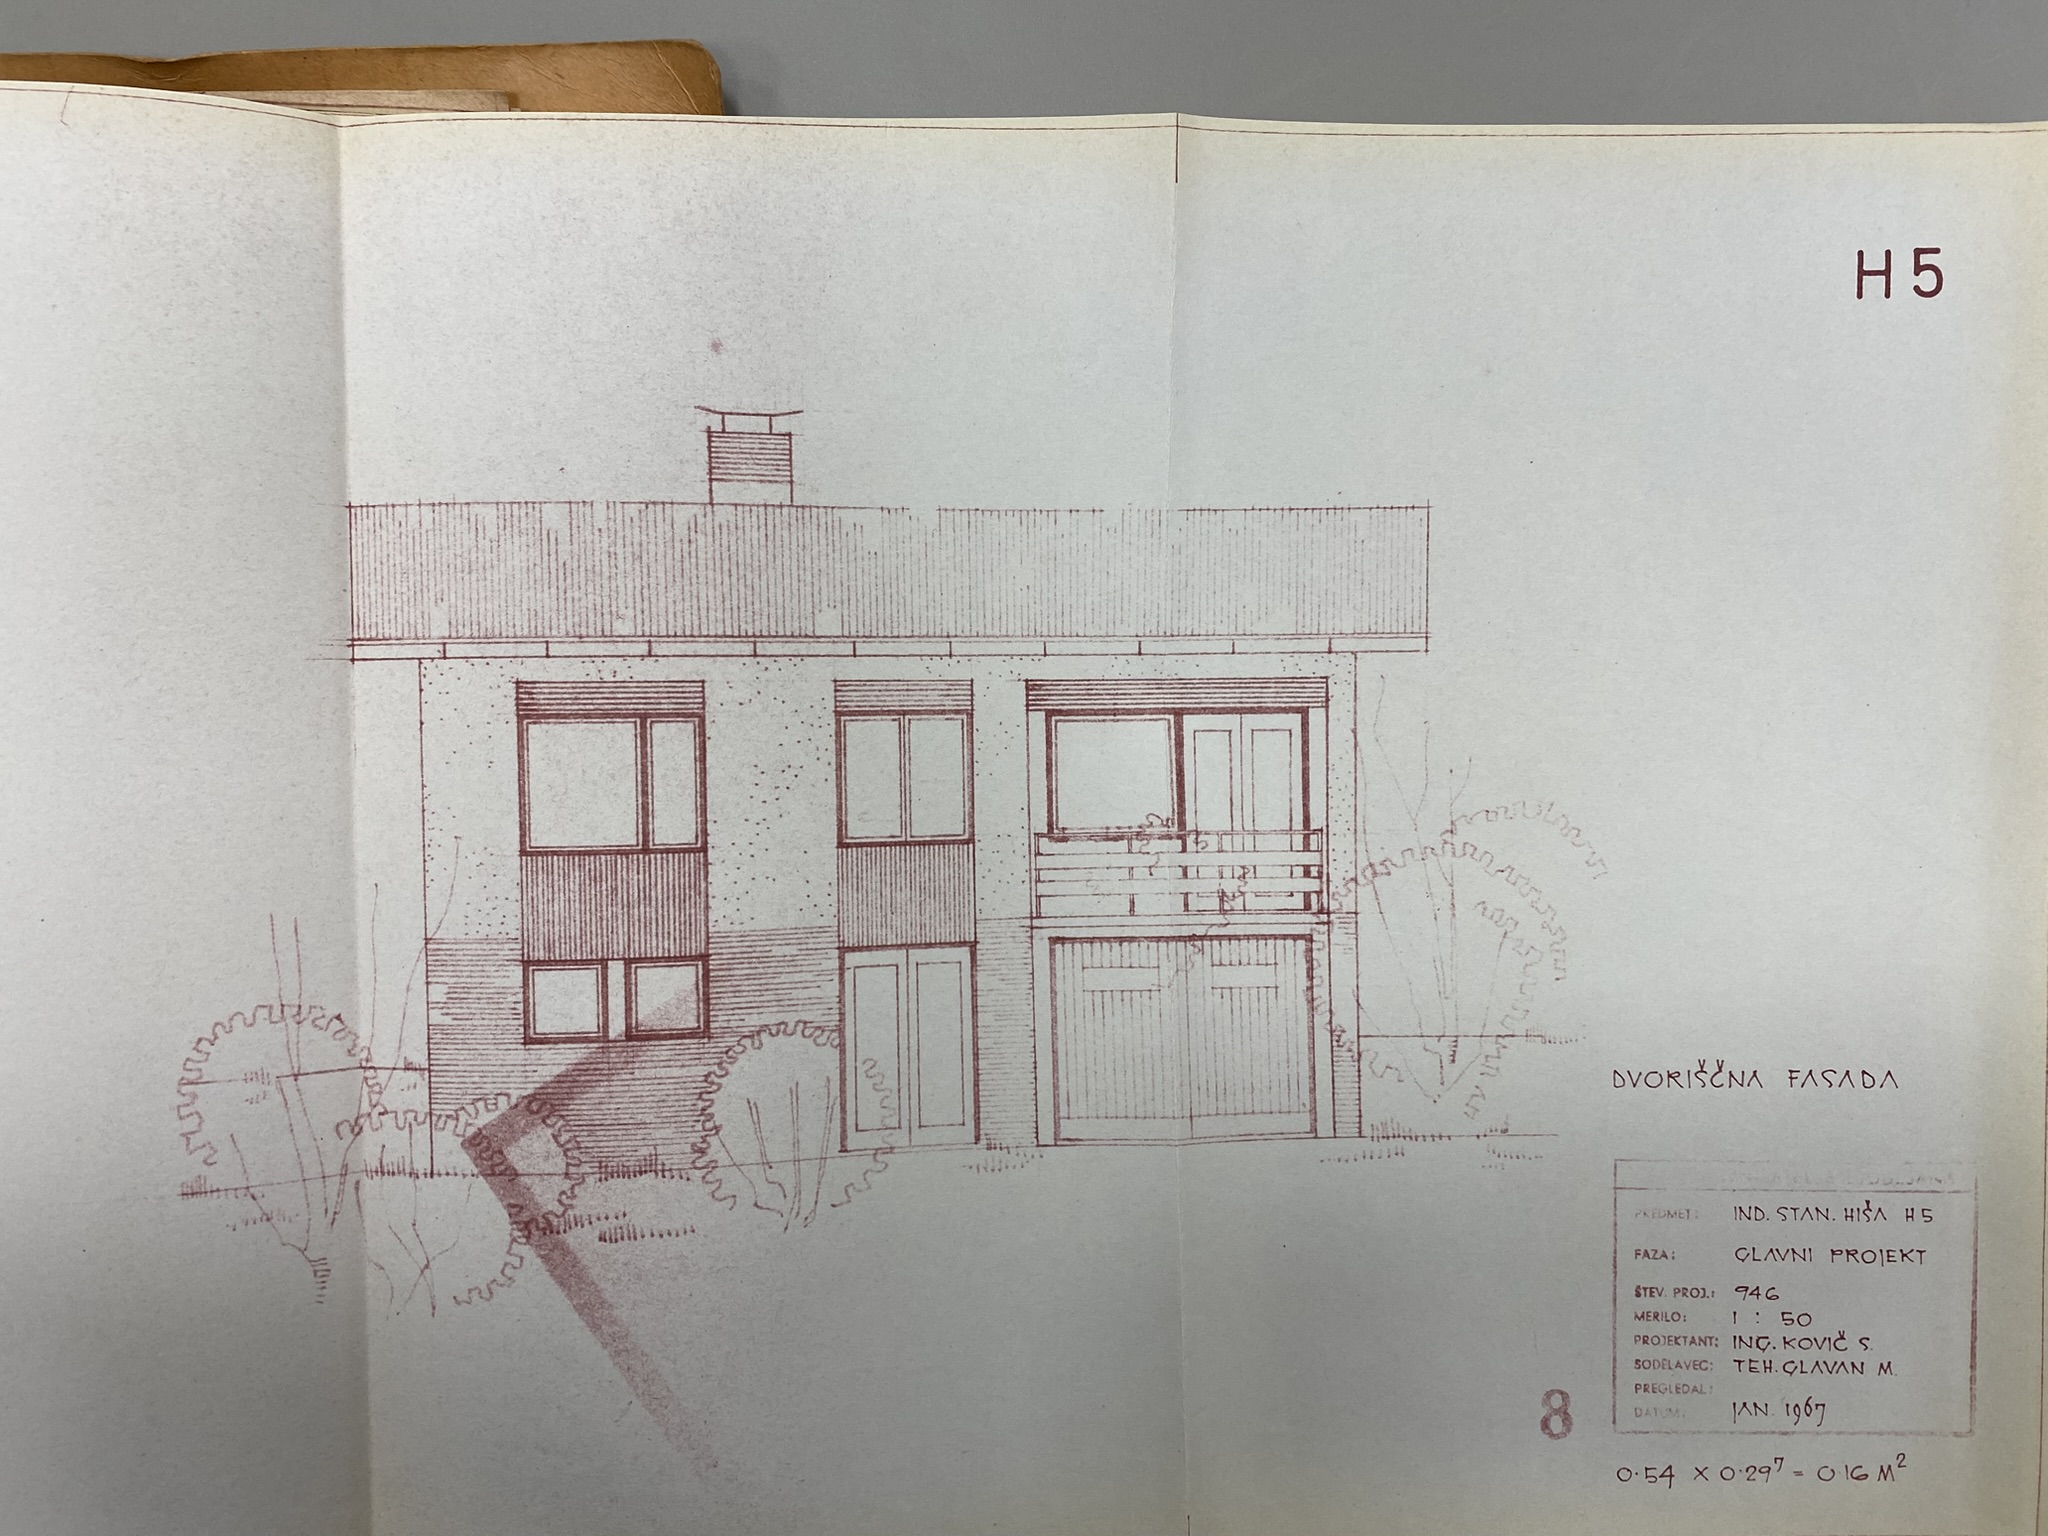 H5
DVORIŠČNA FASADA
PREDMET: IND. STAN. HIŠA H5
FAZA: GLAVNI PROJEKT
ŠTEV. PROJ.: 946
MERILO: 1 : 50
PROJEKTANT: ING. KOVIČ S.
SODELAVEC: TEH. GLAVAN M.
PREGLEDAL:
DATUM: JAN. 1967
8
0.54 × 0.29⁷ = 0.16 M²